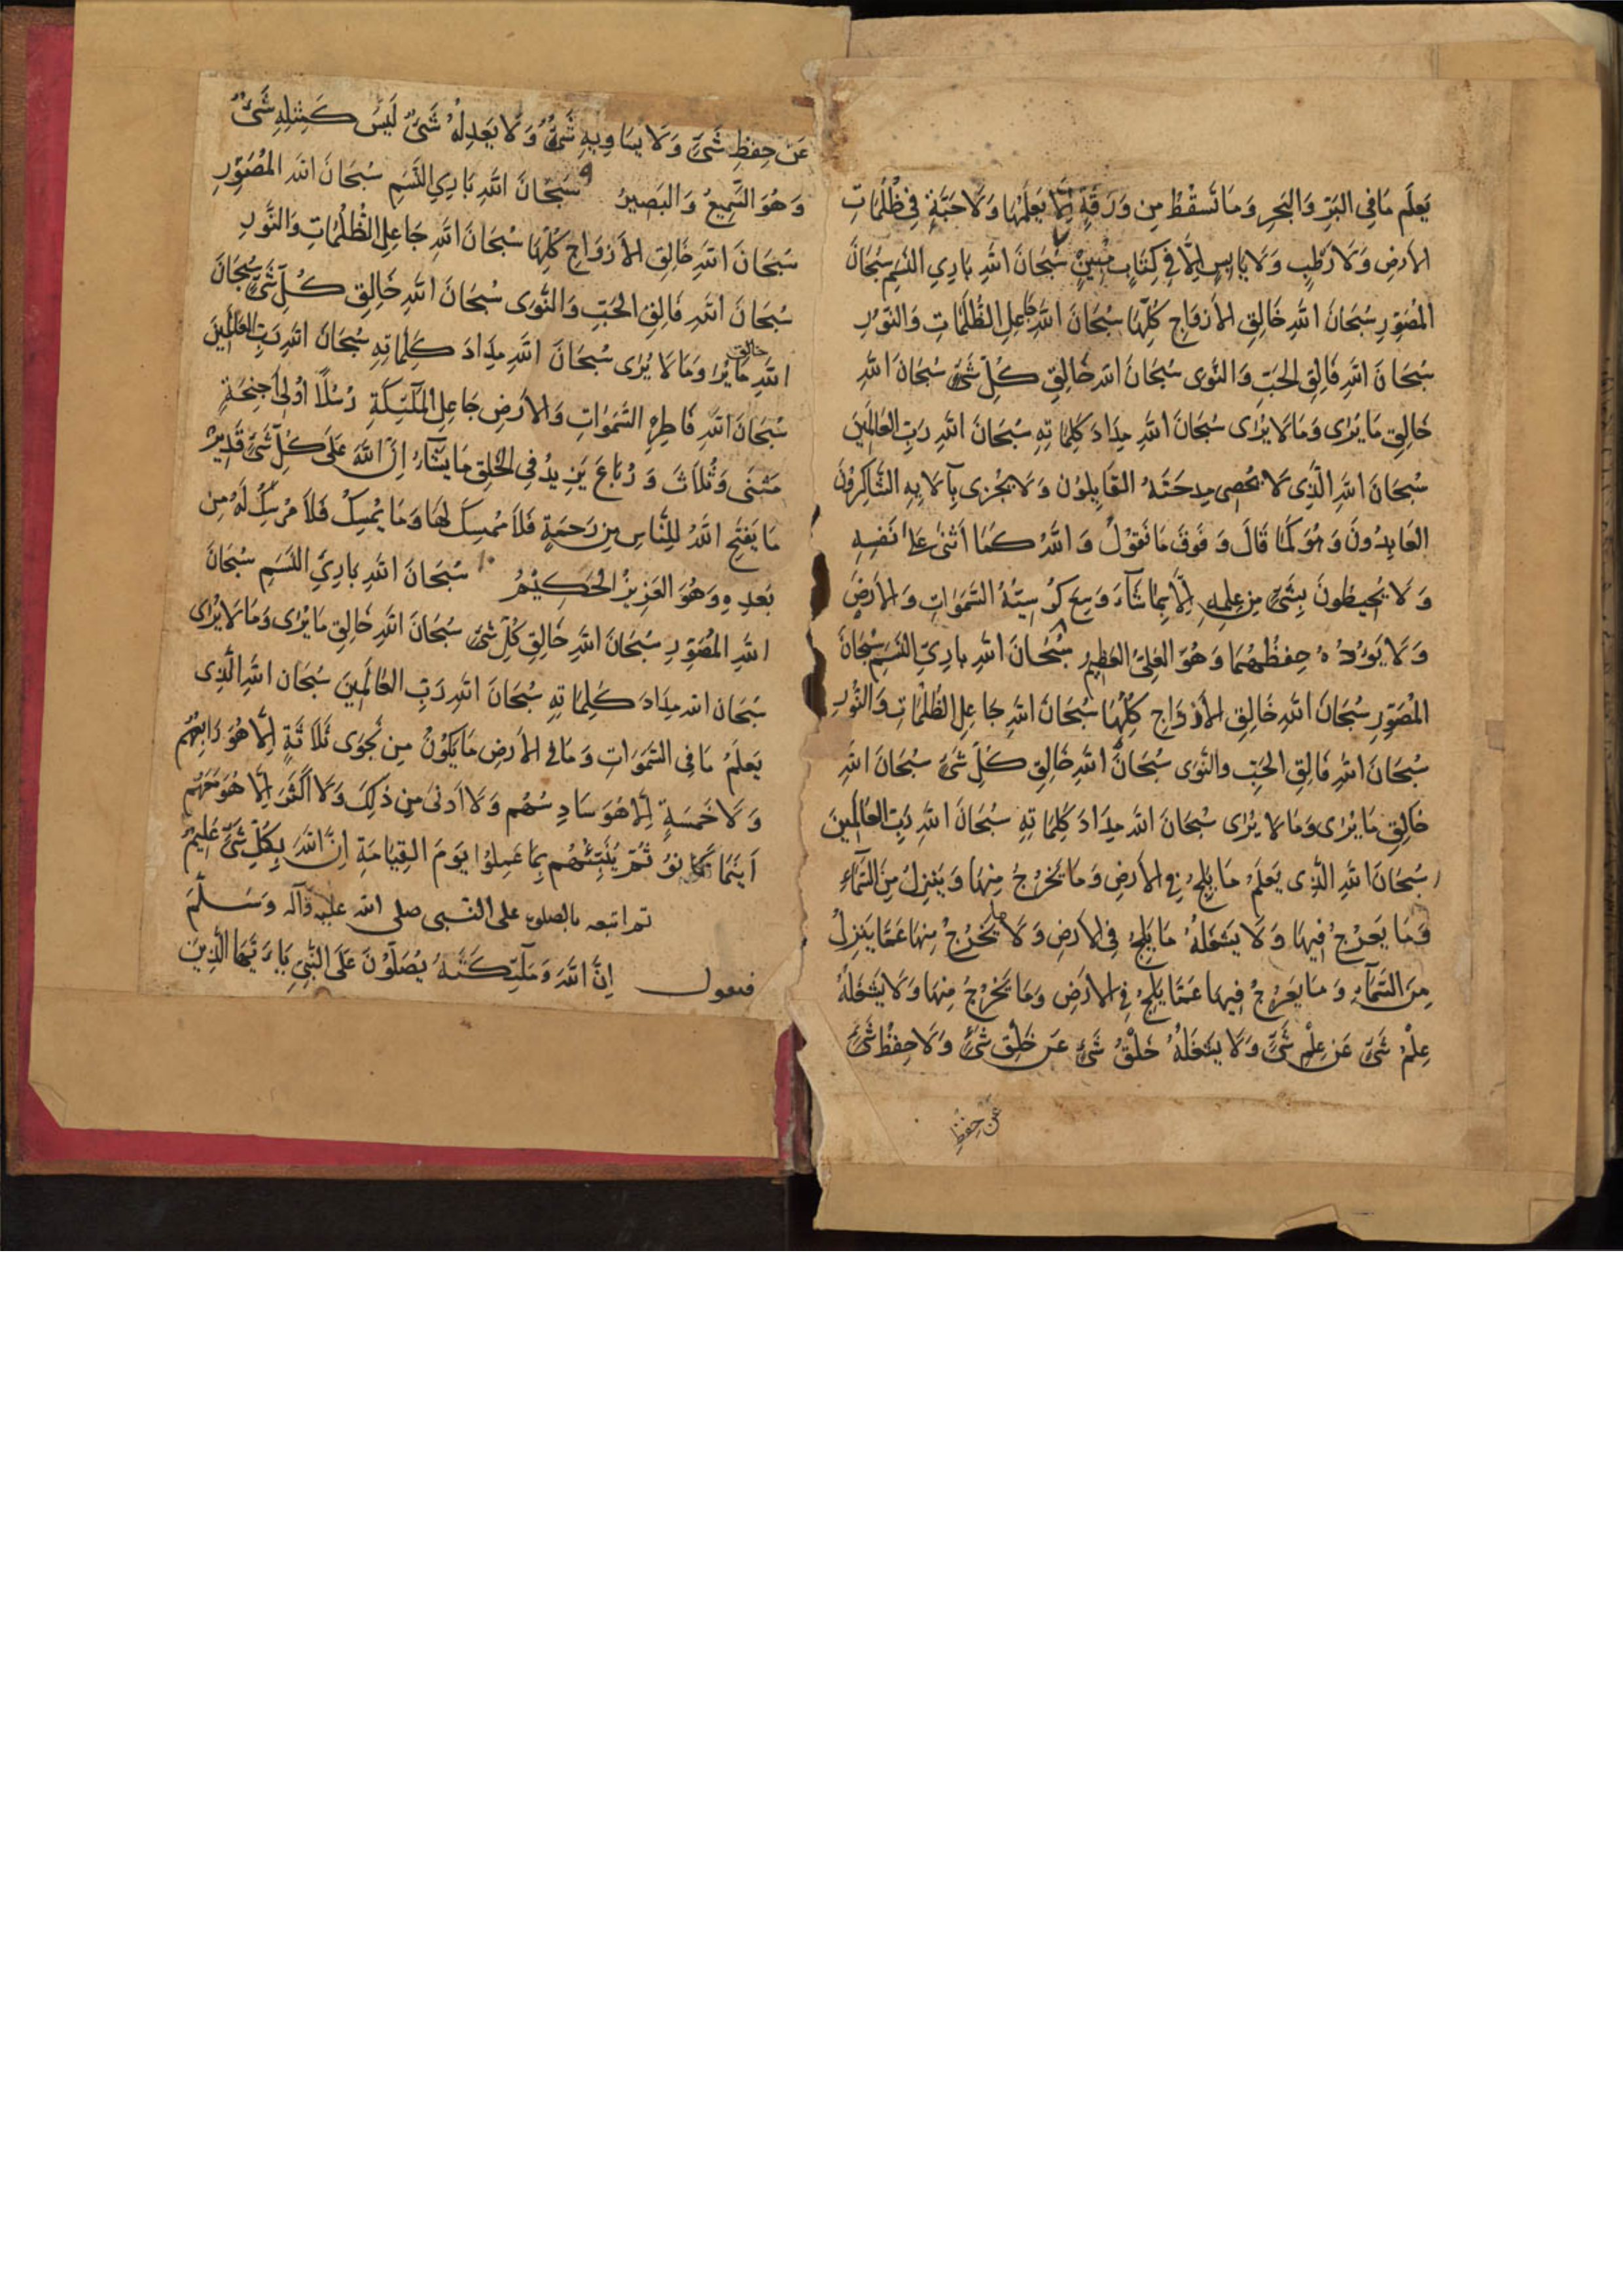 يَعلَم مَا فِي البَرِّ وَالبَحرِ وَمَا تَسقُطُ مِن وَرَقَةٍ اِلَّا يَعلَمُهَا وَلَا حَبَّةٍ فِي ظُلُمَاتِ
الاَرضِ وَلَا رَطبٍ وَلَا يَابِسٍ اِلَّا فِي كِتَابٍ مُبِينٍ ٧ سُبحَانَ اللهِ بَارِيِ النَسَمِ سُبحَانَ
المُصَوِّرِ سُبحَانَ اللهِ خَالِقِ الاَزوَاجِ كُلِّهَا سُبحَانَ اللهِ جَاعِلِ الظُلُمَاتِ وَالنّوُرِ
سُبحَانَ اللهِ فَالِقِ الحَبِّ وَالنَّوى سُبحَانَ اللهِ خَالِقِ كُلِّ شَيءٍ سُبحَانَ اللهِ
خَالِقِ مَا يُرٰى وَمَا لَا يُرٰى سُبحَانَ اللهِ مِدَادَ كَلِمَاتِهِ سُبحَانَ اللهِ رَبِّ العَالَمِينَ
سُبحَانَ اللهِ الَّذِى لَا يُحصِى مِدحَتَهُ القَايِلوُن وَلَا يَجزِى بِآلَايِهِ الشَّاكِرُونَ
العَابِدُونَ وَهُوَ كَمَا قَالَ وَ فَوقَ مَا نَقوُلُ وَ اللهُ كَمَا اَثنٰى عَلٰى نَفسِهِ
وَ لَا يُحِيطُونَ بِشَيءٍ مِن عِلمِهِ اِلَّا بِمَا شَآءَ وَسِعَ كُرسِيُّهُ السَّمَوَاتِ وَالاَرضَ
وَ لَا يَؤدُهُ حِفظُهُمَا وَ هُوَ العَلِيُّ العَظِيم ٨ سُبحَانَ اللهِ بارِيِ النَسَمِ سُبحَانَ
المُصَوِّرِ سُبحَانَ اللهِ خَالِقِ الاَزوَاجِ كُلِّهَا سُبحَانَ اللهِ جَاعِلِ الظُلُمَاتِ وَالنُّورِ
سُبحَانَ اللهِ فَالِقِ الحَبِّ والنَّوَى سُبحَانَ اللهِ خَالِقِ كُلِّ شَيءٍ سُبحَانَ اللهِ
خَالِقِ مَا يُرٰى وَمَا لَا يُرٰى سُبحَانَ اللهِ مِدَادَ كَلِمَاتِهِ سُبحَانَ اللهِ رَبِّ العَالَمِينَ
سُبحَانَ اللهِ الَّذِى يَعلَمُ مَا يَلِجُ فِي الاَرضِ وَمَا يَخرُجُ مِنهَا وَ يَنزِلُ مِنَ السَّمَآءِ
وَمَا يَعرُجُ فِيهَا وَ لَا يَشغَلُهُ مَا يَلِجُ فِي الاَرضِ وَ لَا مَا يَخرُجُ مِنهَا عَمَّا يَنزِلُ
مِنَ السَّمَآءِ وَ مَا يَعرُجُ فِيهَا عَمَّا يَلِجُ فِي الاَرضِ وَمَا يَخرُجُ مِنهَا وَلَا يَشغَلُهُ
عِلمُ شَيءٍ عَن عِلمِ شَيءٍ وَلَا يَشغَلُهُ خَلقُ شَيءٍ عَن خَلقِ شَيءٍ وَلَا حِفظُ شَيءٍ
عَن حِفظِ
عَن حِفظِ شَيءٍ وَلَا يُسَاوِيهِ شَيءٌ وَلَا يَعدِلُهُ شَيءٌ لَيسَ كَمِثلِهِ شَيءٌ
وَ هُوَ السَّمِيعُ وَ البَصِيرُ ٩ سُبحَانَ اللهِ بَارِيِ النَسَمِ سُبحَانَ اللهِ المُصَوِّرِ
سُبحَانَ اللهِ خَالِقِ الاَزوَاجِ كُلِّهَا سُبحَانَ اللهِ جَاعِلِ الظُلُمَاتِ وَالنُّورِ
سُبحَانَ اللهِ فَالِقِ الحَبِّ وَالنَّوَى سُبحَانَ اللهِ خَالِقِ كُلِّ شَيءٍ سُبحَانَ
اللهِ خالق مَا يُرَا وَمَا لَا يُرٰى سُبحَانَ اللهِ مِدَادَ كَلِمَاتِهِ سُبحَانَ اللهِ رَبِّ العَالَمِينَ
سُبحَانَ اللهِ فَاطِرِ السَّمَوَاتِ وَالاَرضِ جَاعِلِ المَلٰٓئِكَةِ رُسُلًا اوُلِى اَجنِحَةٍ
مَثنَى وَثُلَاثَ وَ رُبَاعَ يَزِيدُ فِى الخَلقِ مَا يَشَآءُ اِنَّ اللهَ عَلَى كُلِّ شَيءٍ قَدِيرٌ
مَا يَفتَحِ اللهُ لِلنَّاسِ مِن رَحمَةٍ فَلَا مُمسِكَ لَهَا وَمَا يُمسِك فَلَا مُرسِلَ لَهُ مِن
بَعدِهِ وَهُوَ العَزِيزُ الحَكِيمُ ١٠ سُبحَانَ اللهِ بَارِيِ النَسَمِ سُبحَانَ
اللهِ المُصَوِّرِ سُبحَانَ اللهِ خَالِقِ كُلِّ شَيءٍ سُبحَانَ اللهِ خَالِقِ مَا يُرٰى وَمَا لَا يُرٰى
سُبحَانَ اللهِ مِدَادَ كَلِمَاتِهِ سُبحَانَ اللهِ رَبِّ العَالَمِينَ سُبحَانَ اللهِ الَّذِى
يَعلَمُ مَا فِى السَّمَوَاتِ وَ مَا فِى الاَرضِ مَا يَكوُنُ مِن نَجوَى ثَلَاثَةٍ اِلَّا هُوَ رَابِعُهُم
وَ لَا خَمسَةٍ اِلَّا هُوَ سَادِسُهُم وَ لَا اَدنَى مِن ذٰلِكَ وَ لَا اَكثَرَ اِلَّا هُوَ مَعَهُم
اَينَمَا كَانوُ ثُمَّ يُنَبِّئُهُم بِمَا عَمِلوُا يَومَ القِيَامَةِ اِنَّ اللهَ بِكُلِّ شَيءٍ عَلِيمٌ
ثم اتبعه بالصلوة على النبى صلى الله عليه وَآله وَسَلَّمَ
فتقول اِنَّ اللهَ وَمَلٰٓئِكَتَهُ يُصَلّوُنَ عَلَى النَّبِيِ يَا اَيُّهَا الَّذِينَ